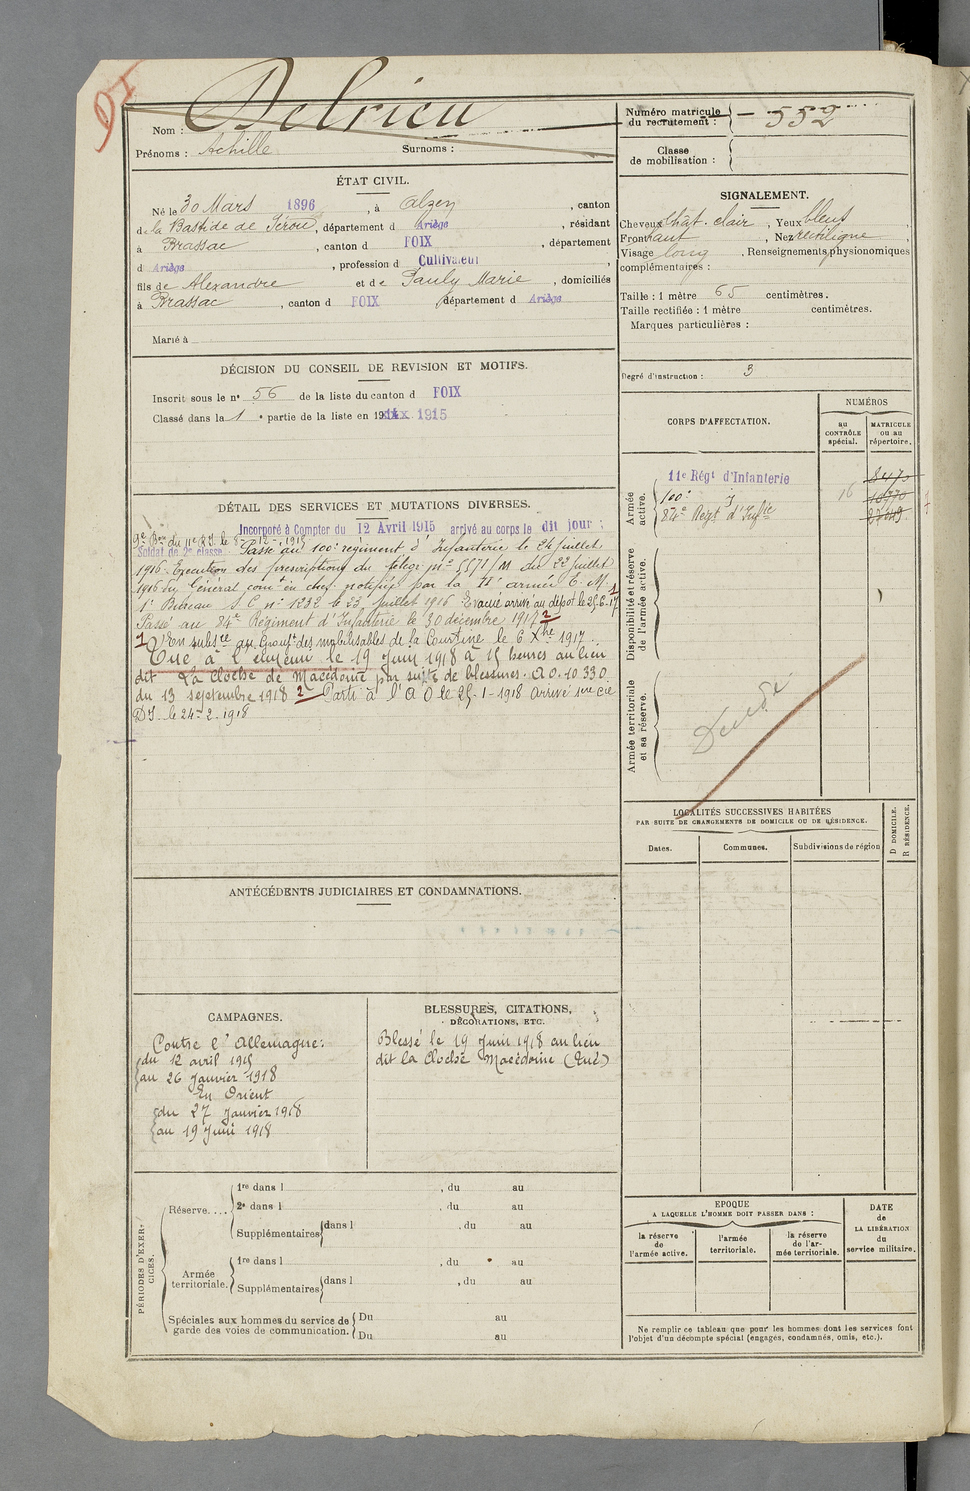 Nom : Delrieu
Prénoms : Achille Surnoms :
Numéro matricule du recrutement : 552
Classe de mobilisation :
ÉTAT CIVIL.
Né le 30 Mars 1896, à Alzen, canton
de la Bastide de Sérou, département d Ariège, résidant
à Brassac, canton d FOIX, département
d Ariège, profession d Cultivateur,
fils de Alexandre et de Pauly Marie, domiciliés
à Brassac, canton d FOIX, département d Ariège
Marié à
SIGNALEMENT.
Cheveux chat. clair, Yeux bleus
Front haut, Nez rectiligne,
Visage long. Renseignements physionomiques
complémentaires :
Taille : 1 mètre 65 centimètres.
Taille rectifiée : 1 mètre centimètres.
Marques particulières :
Degré d'instruction : 3
DÉCISION DU CONSEIL DE REVISION ET MOTIFS.
Inscrit sous le n° 56 de la liste du canton d FOIX
Classé dans la 1e partie de la liste en 1915
CORPS D'AFFECTATION.
NUMÉROS
au CONTRÔLE spécial.
MATRICULE ou au répertoire.
Armée active.
11e Régt d'Infanterie
100e 16
84e Régt d'Infie
Disponibilité et réserve de l'armée active.
Armée territoriale et sa réserve.
DÉTAIL DES SERVICES ET MUTATIONS DIVERSES.
Incorporé à Compter du 12 Avril 1915 arrivé au corps le dit jour ;
Soldat de 2e classe
Passé au 100e régiment d'Infanterie le 24 juillet
1916. Execution des prescriptions du télégr. n° 5571/M du 22 juillet
1916 du Général comt en chef notifiée par la
1r Bureau S.C n° 1232 le 23 juillet 1916. Evacué arrivé au dépôt le 25-6-17
Passé au 84e Régiment d'Infanterie le 30 décembre 1917 2
1 En subsce au Groupt des mobilisables de la Courtine le 6 Xbre 1917.
Tué à l'ennemi le 19 Juin 1918 à 15 heures au lieu
dit La cloche de Macédoine par suite de blessures. A O. 10.330
du 13 septembre 1918 2 Parti à l'A O le 25-1-1918 arrivé
D I le 24-2-1918
LOCALITÉS SUCCESSIVES HABITÉES
PAR SUITE DE CHANGEMENTS DE DOMICILE OU DE RÉSIDENCE.
Dates.
Communes.
Subdivisions de région
D DOMICILE.
R RÉSIDENCE.
ANTÉCÉDENTS JUDICIAIRES ET CONDAMNATIONS.
CAMPAGNES.
Contre l'Allemagne:
du 12 avril 1915
au 26 Janvier 1918
En Orient
du 27 Janvier 1918
au 19 Juin 1918
BLESSURES, CITATIONS,
DÉCORATIONS, ETC.
Blessé le 19 Juin 1918 au lieu
dit la Cloche Macédoine (Tué)
PÉRIODES D'EXERCICES.
Réserve....
1re dans l , du au
2e dans l , du au
Supplémentaires dans l , du au
Armée territoriale.
1re dans l , du au
Supplémentaires dans l , du au
Spéciales aux hommes du service de garde des voies de communication.
Du au
Du au
EPOQUE
A LAQUELLE L'HOMME DOIT PASSER DANS :
la réserve de l'armée active.
l'armée territoriale.
la réserve de l'armée territoriale.
DATE de LA LIBÉRATION du service militaire.
Ne remplir ce tableau que pour les hommes dont les services font
l'objet d'un décompte spécial (engagés, condamnés, omis, etc.).